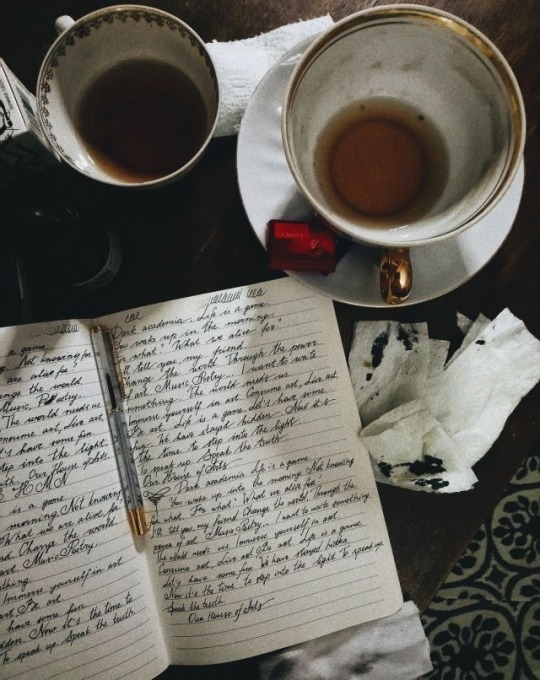 a game
g. Not knowing for
are alive for?
change the world.
Music, Poetry...
The world needs us
onsume art, Live art
t's have some fun
step into the light.
Our House of Arts.
H.M.N
is a game
morning Not knowing
What we are alive for
nd. Change the world
art. Music Poetry...
thing.
Immerse yourself in art
art
have some fun
dden. Now it's the time to
To speak up. Speak the truth.
Dark academia. Life is a game
You wake up in the morning
what? What we alive for?
I'll tell you, my friend
change the world. Through the power
of art Music Poetry... I want to write
something. The world needs us
Immerse yourself in art Consume art, Live art
art. Life is a game. Let's have some
fun. We have stayed hidden. Now it's
the time to step into the light
To speak up Speak the truth
Our House of Arts
Dark academia Life is a game
You wakes up into the morning Not knowing
for what. For what? What we alive for
I'll tell you, my friend Change the world. Through the
power of art Music Poetry... I want to write something
The world needs us, Immerse yourself in art
Consume art, Live art. Life is a game
Let's have some fun. We have stayed hidden
Now it's the time to step into the light To speak up
Speak the truth
Our House of Arts